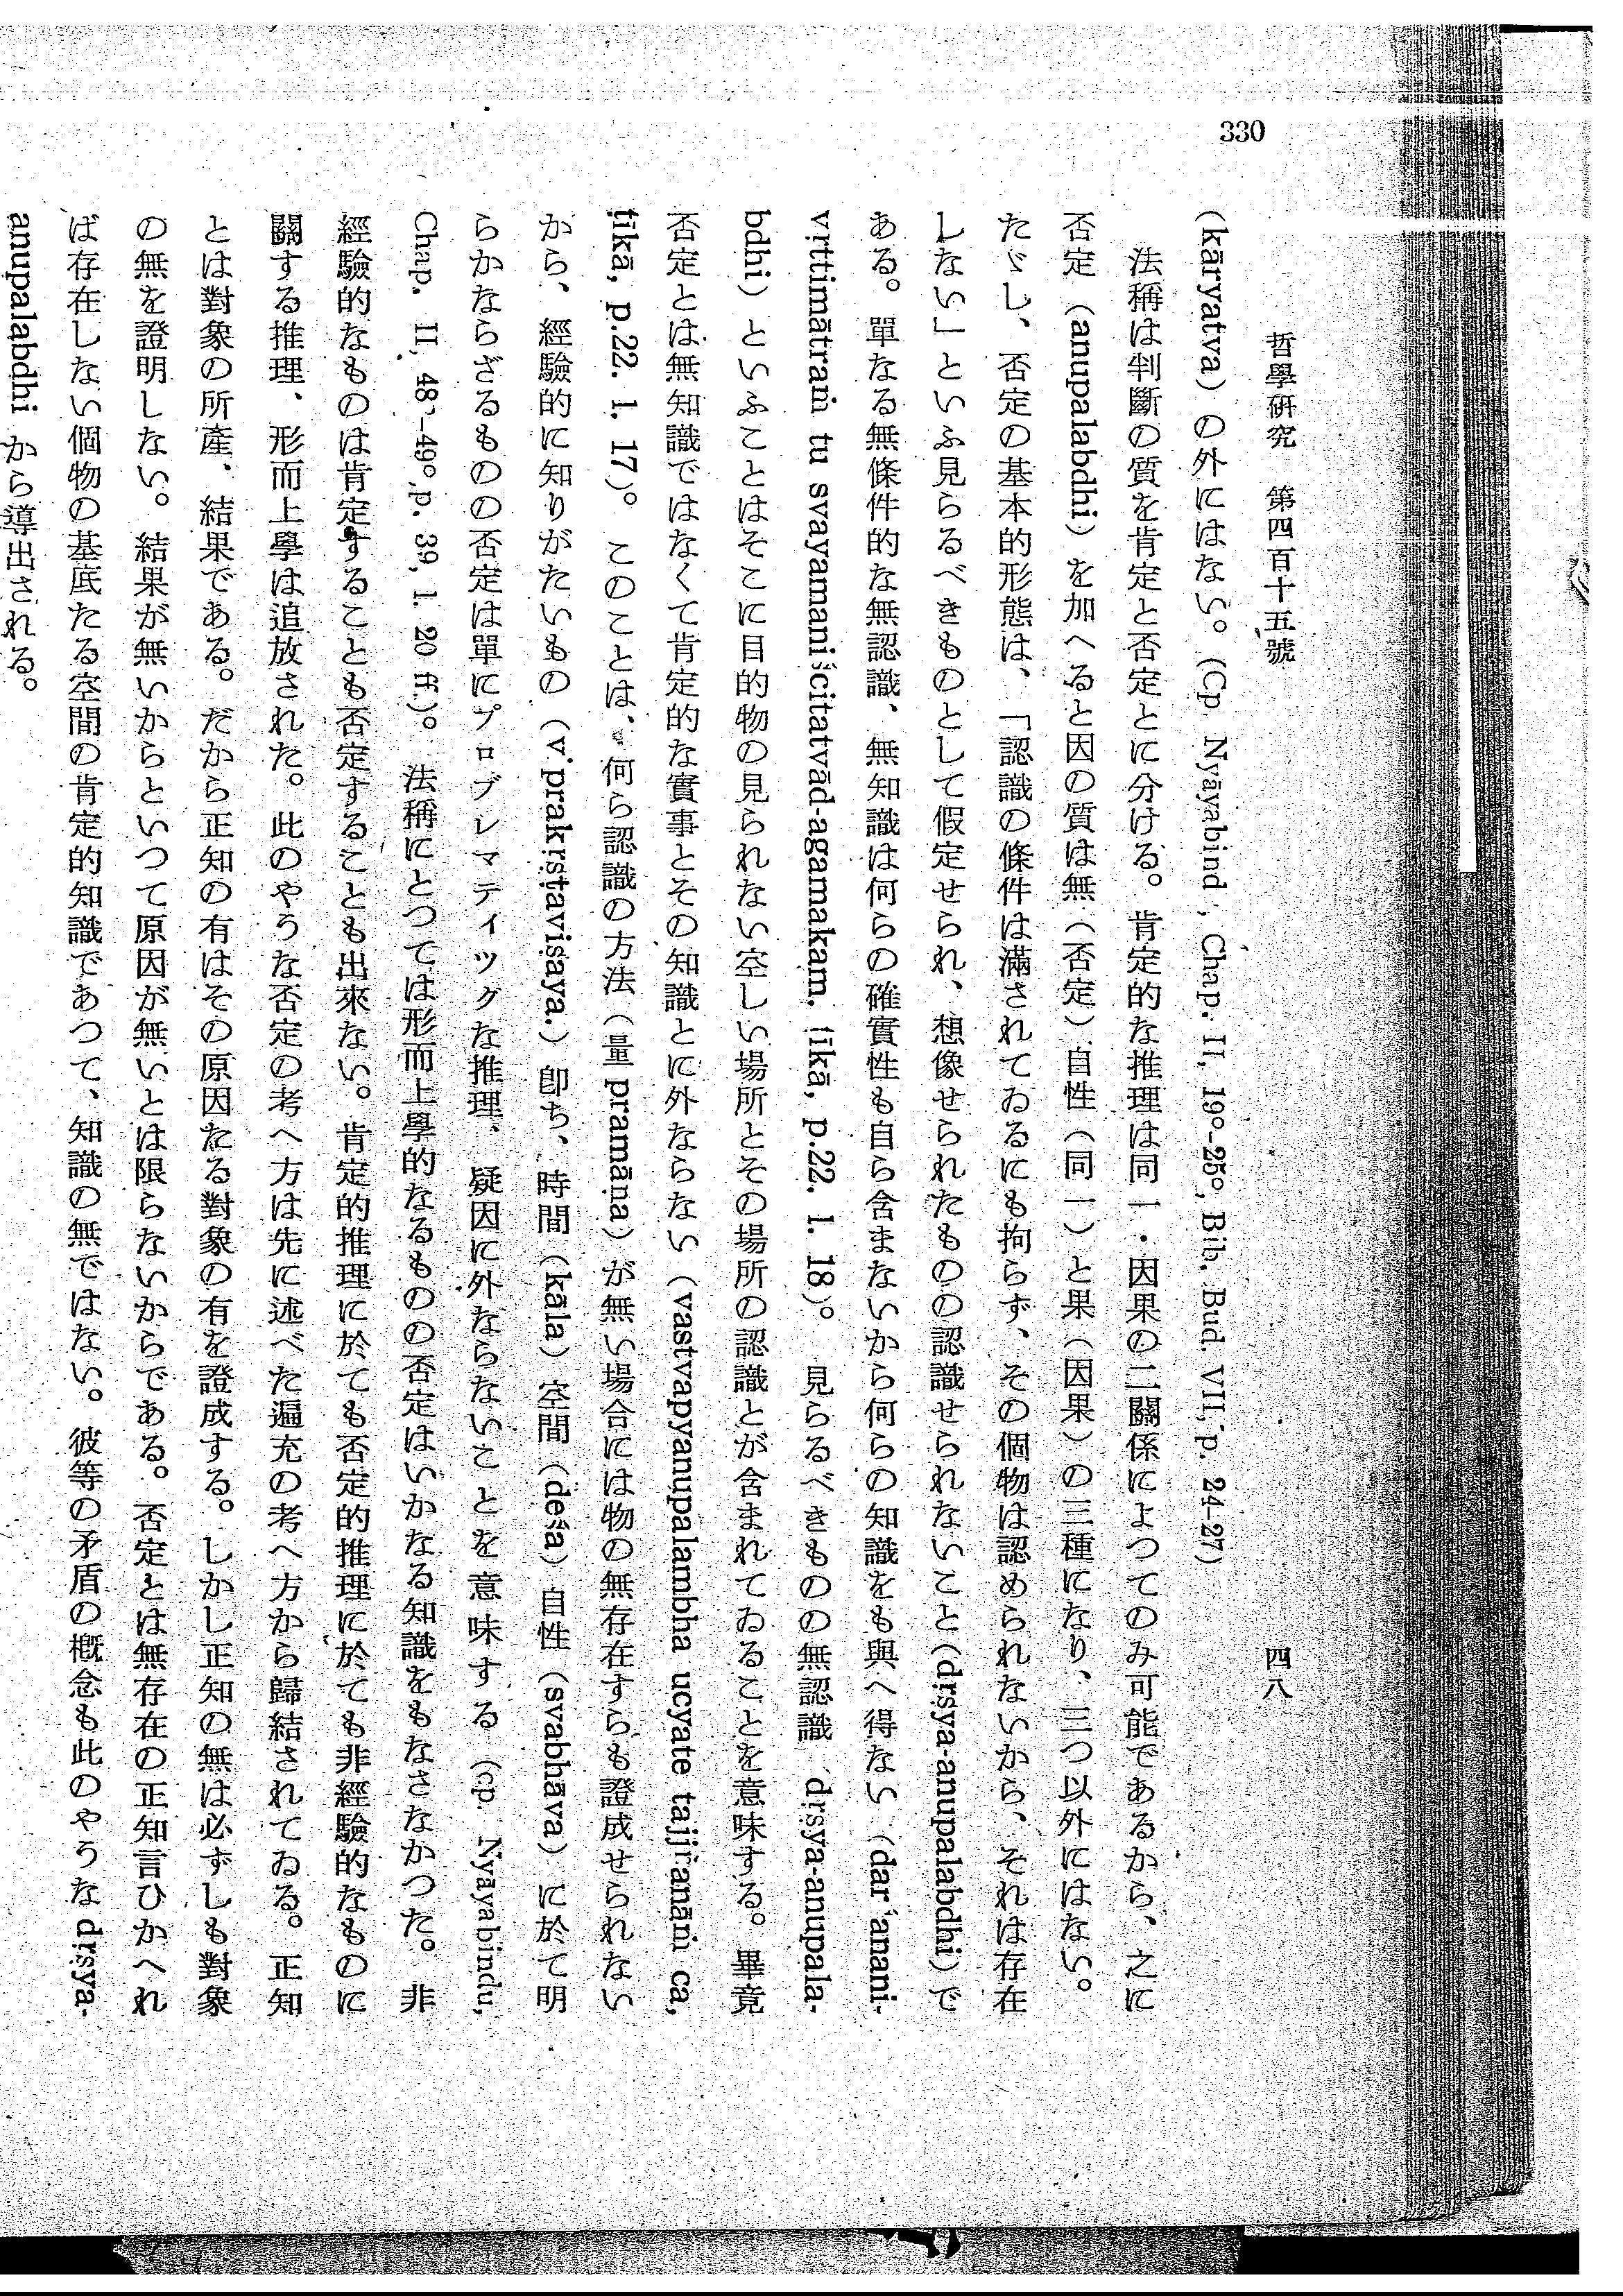 330
哲學硏究　第四百十五號
四八
(kāryatva) の外にはない。(Cp. Nyāyabind , Chap. II, 19°-25°, Bib. Bud. VII, p. 24-27)
法稱は判斷の質を肯定と否定とに分ける。肯定的な推理は同一・因果の二關係によつてのみ可能であるから、之に
否定（anupalabdhi）を加へると因の質は無（否定）自性（同一）と果（因果）の三種になり、三つ以外にはない。
たゞし、否定の基本的形態は、「認識の條件は滿されてゐるにも拘らず、その個物は認められないから、それは存在
しない」といふ見らるべきものとして假定せられ、想像せられたものの認識せられないこと（dṛsya-anupalabdhi）で
ある。單なる無條件的な無認識、無知識は何らの確實性も自ら含まないから何らの知識をも與へ得ない（dar anani-
vṛttimātraṁ tu svayamaniścitatvād-agamakam. ṭīkā, p.22. l. 18)。見らるべきものの無認識 dṛsya-anupala-
bdhi）といふことはそこに目的物の見られない空しい場所とその場所の認識とが含まれてゐることを意味する。畢竟
否定とは無知識ではなくて肯定的な實事とその知識とに外ならない（vastvapyanupalambha ucyate tajjñanāṁ ca,
ṭīkā, p.22. l. 17)。このことは、何ら認識の方法（量 pramāṇa）が無い場合には物の無存在すらも證成せられない
から、經驗的に知りがたいもの（viprakṛṣṭaviṣaya.）卽ち、時間（kāla）空間（deśa）自性（svabhāva）に於て明
らかならざるものの否定は單にプロブレマティックな推理、疑因に外ならないことを意味する（cp. Nyāyabindu,
Chap. II, 48°-49°, p. 39, l. 20 ff.)。法稱にとつては形而上學的なるものの否定はいかなる知識をもなさなかつた。非
經驗的なものは肯定することも否定することも出來ない。肯定的推理に於ても否定的推理に於ても非經驗的なものに
關する推理、形而上學は追放された。此のやうな否定の考へ方は先に述べた遍充の考へ方から歸結されてゐる。正知
とは對象の所產、結果である。だから正知の有はその原因たる對象の有を證成する。しかし正知の無は必ずしも對象
の無を證明しない。結果が無いからといつて原因が無いとは限らないからである。否定とは無存在の正知言ひかへれ
ば存在しない個物の基底たる空間の肯定的知識であつて、知識の無ではない。彼等の矛盾の槪念も此のやうな dṛsya-
anupalabdhi から導出される。